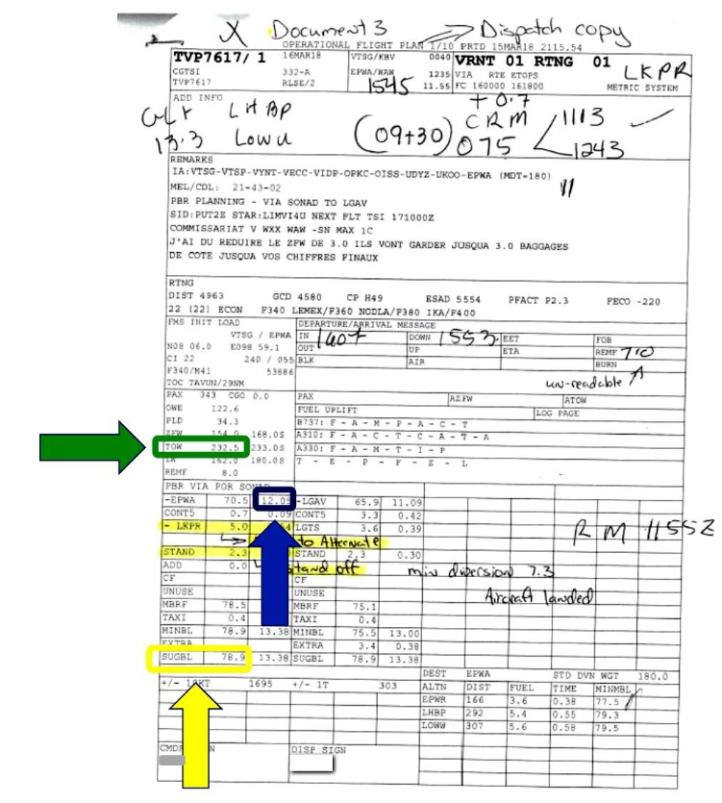 X Document 3 => Dispatch copy
OPERATIONAL FLIGHT PLAN 1/10 PRTD 15MAR18 2115.54
TVP7617/ 1 16MAR18 VTSG/KBV 0040 VRNT 01 RTNG 01
CGTSI 332-A EPWA/WAW 1235 VIA RTE ETOPS LKPR
TVP7617 RLSE/2 1545 11.55 FC 160000 161800 METRIC SYSTEM
ADD INFO + 0.7
LHBP CRM 1113
13.3 LOWW (09+30) 075 1243
REMARKS
IA:VTSG-VTSP-VYNT-VECC-VIDP-OPKC-OISS-UDYZ-UKOO-EPWA (MDT=180)
MEL/CDL: 21-43-02 11
PBR PLANNING - VIA SONAD TO LGAV
SID:PUT2E STAR:LIMVI4U NEXT FLT TSI 171000Z
COMMISSARIAT V WXX WAW -SN MAX 1C
J'AI DU REDUIRE LE ZFW DE 3.0 ILS VONT GARDER JUSQUA 3.0 BAGGAGES
DE COTE JUSQUA VOS CHIFFRES FINAUX
RTNG
DIST 4963 GCD 4580 CP H49 ESAD 5554 PFACT P2.3 FECO -220
22 (22) ECON F340 LEMEX/F360 NODLA/F380 IKA/F400
FMS INIT LOAD DEPARTURE/ARRIVAL MESSAGE
VTSG / EPWA IN 1607 DOWN 1553 EET FOB
N08 06.0 E098 59.1 OUT UP ETA REMF 710
CI 22 240 / 055 BLK AIR BURN
F340/M41 53886
TOC TAVUN/29NM un-readable
PAX 343 CGO 0.0 PAX AZFW ATOW
OWE 122.6 FUEL UPLIFT LOG PAGE
PLD 34.3 B737: F - A - M - P - A - C - T
ZFW 154.0 168.0S A310: F - A - C - T - C - A - T - A
TOW 232.5 233.0S A330: F - A - M - T - I - P
LW 162.0 180.0S T - E - P - F - Z - L
REMF 8.0
PBR VIA POR SONAD
-EPWA 70.5 12.05 -LGAV 65.9 11.09
CONT5 0.7 0.09 CONT5 3.3 0.42
- LKPR 5.0 LGTS 3.6 0.39 RM 1155Z
to Alternate
STAND 2.3 STAND 2.3 0.30
ADD 0.0 Stand off min diversion 7.3
CF CF
UNUSE UNUSE Aircraft landed
MBRF 78.5 MBRF 75.1
TAXI 0.4 TAXI 0.4
MINBL 78.9 13.38 MINBL 75.5 13.00
EXTRA EXTRA 3.4 0.38
SUGBL 78.9 13.38 SUGBL 78.9 13.38
DEST EPWA STD DVN WGT 180.0
+/- 1695 +/- 1T 303 ALTN DIST FUEL TIME MINMBL
EPWR 166 3.6 0.38 77.5
LHBP 292 5.4 0.55 79.3
LOWW 307 5.6 0.58 79.5
CMDR DISP SIGN